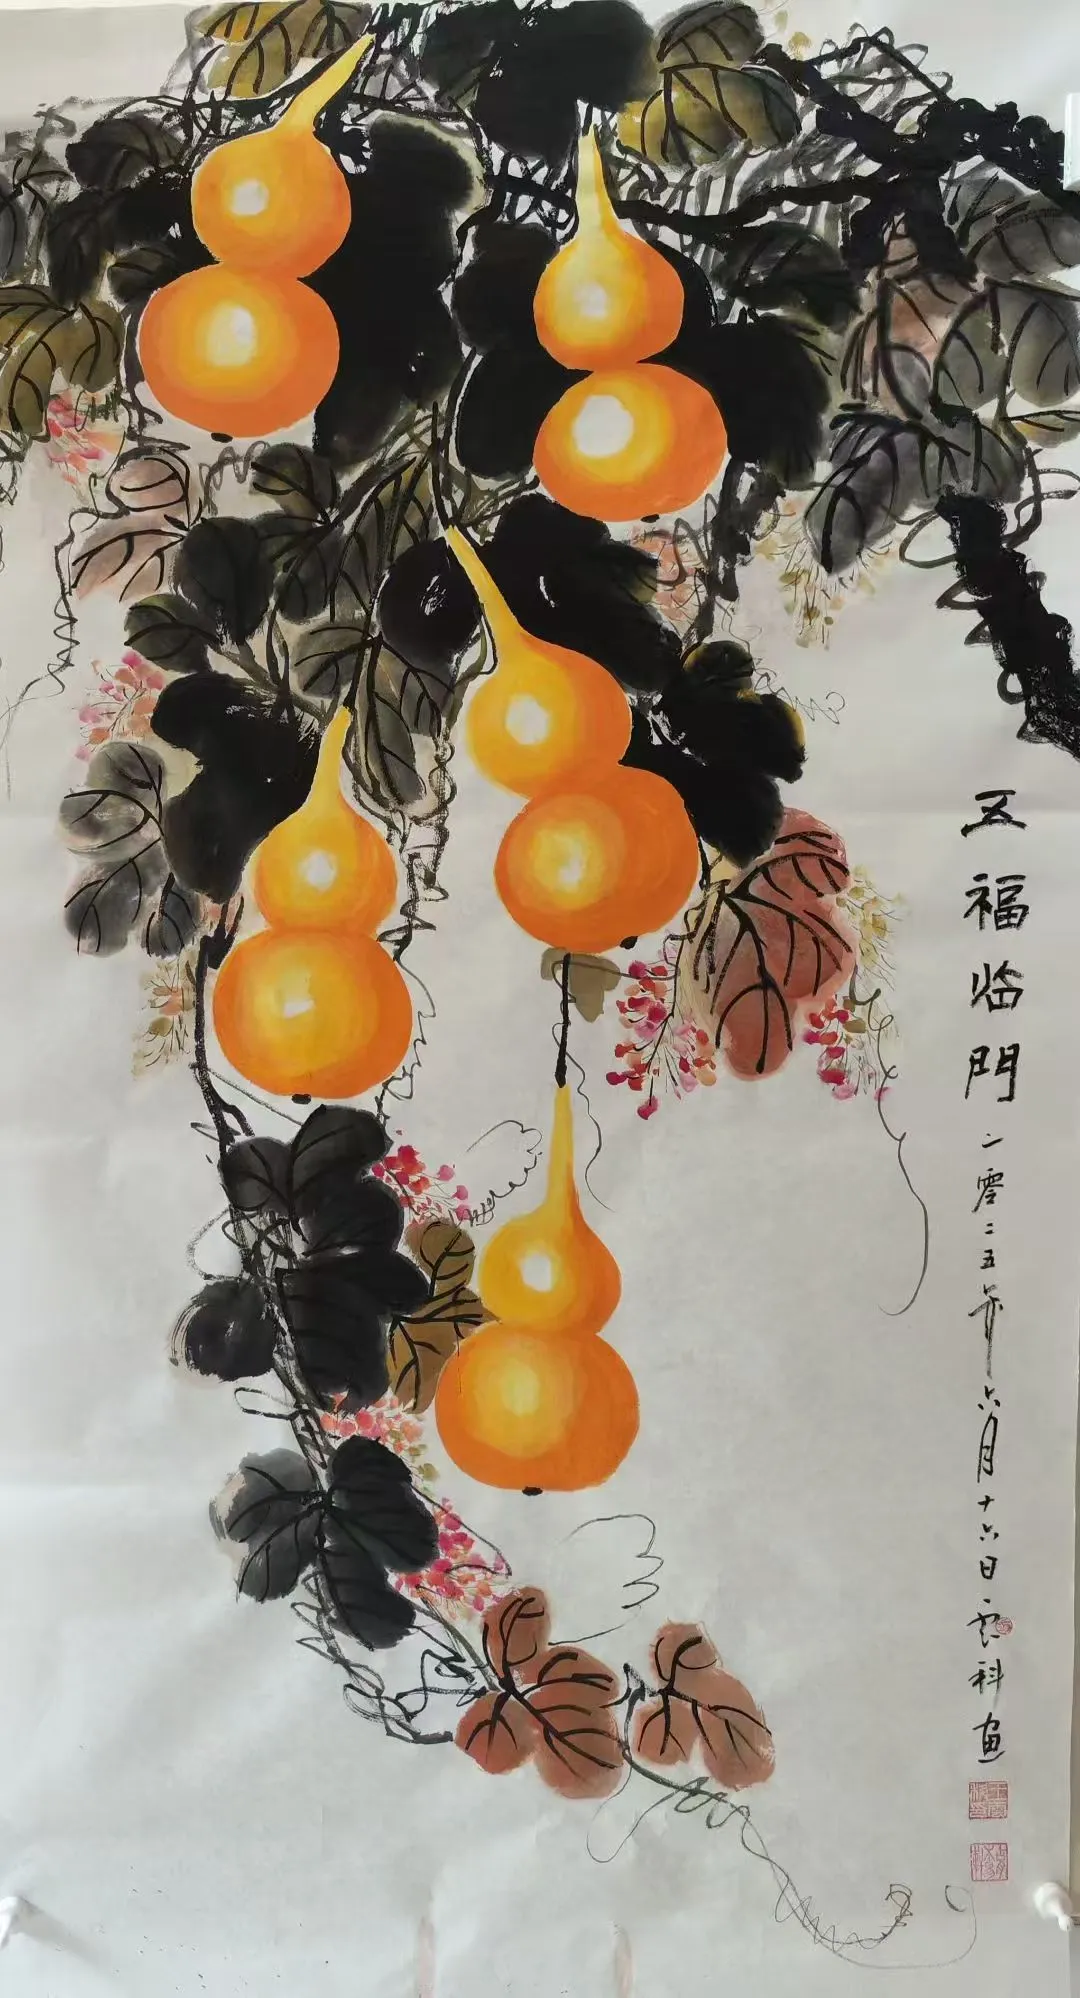 五福临門
二零二五年六月十六日云科画